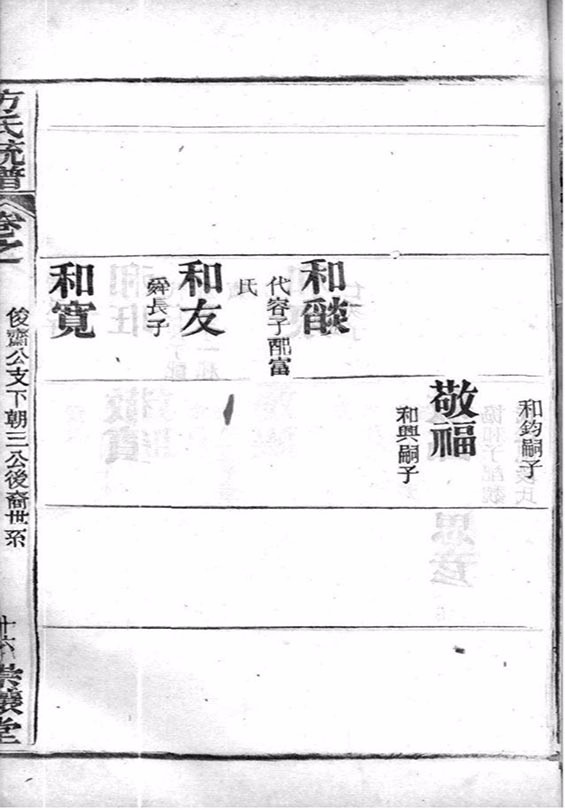 和鈞嗣子
敬福
和興嗣子
代容子配富
氏
和友
舜長子
和寬
方氏統譜
卷之
俊齋公支下朝三公後裔世系
十六